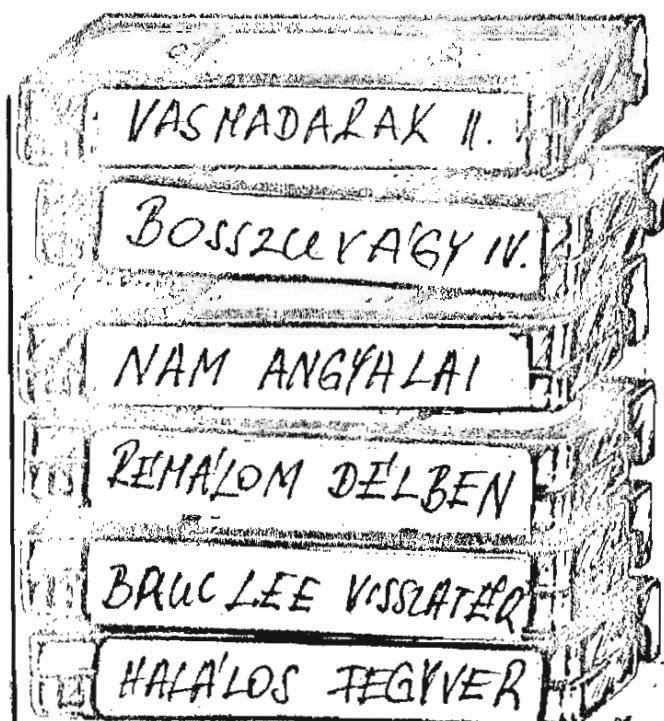 VASMADARAK II.
BOSSZUVÁGY IV.
NAM ANGYALAI
RÉMÁLOM DÉLBEN
BRUC LEE VISSZATÉR
HALÁLOS FEGYVER